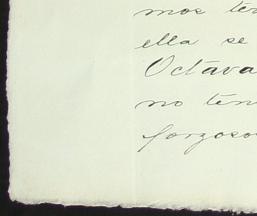 mos ten
ella se
Octava
no ten
forzoso